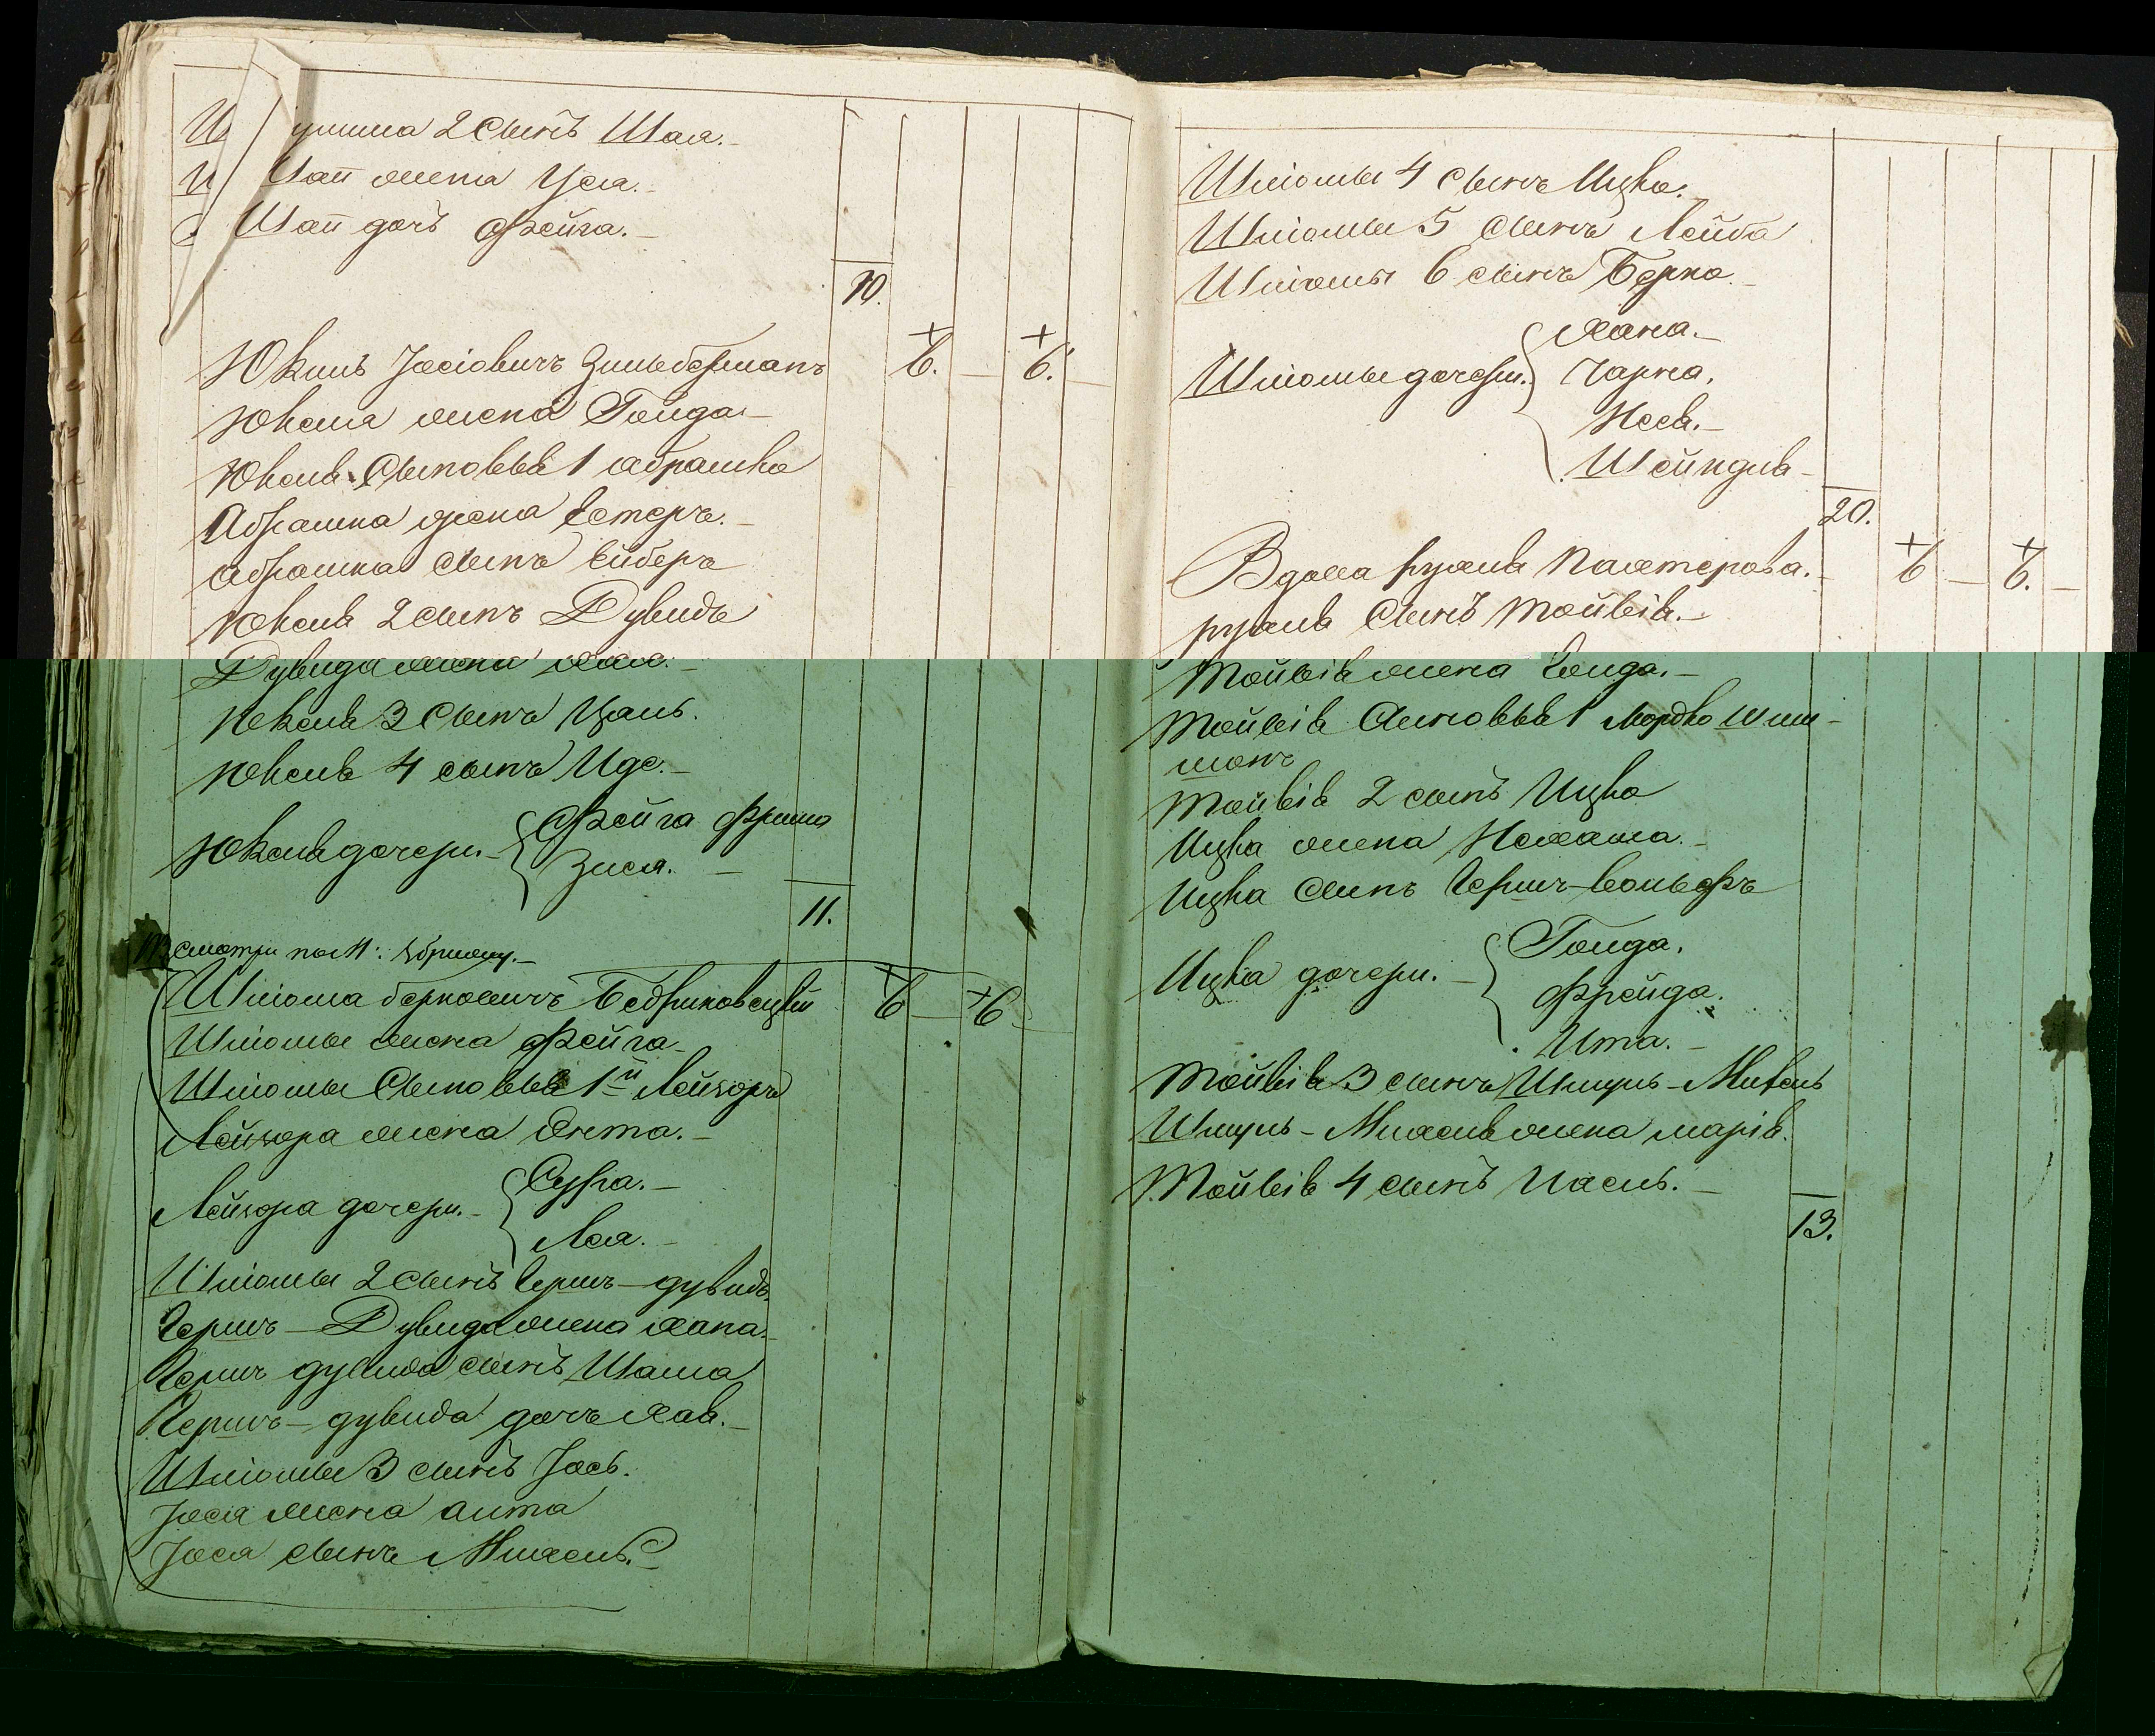 2 сынъ Шая.
жена Уся.
дочь Фейга.
10.
Юкель Іосіовичъ Зильберманъ 6. 6.
Юкеля жена Гольда
Юкеля Сыновья 1 Абрашка
Абрашка жена Естеръ.
Абрашка сынъ Ейберъ
Юкеля 2 сынъ Дувидъ
Дувида жена Хая.
Юкеля 3 Сынъ
Юкеля 4 сынъ Иде.
Юкеля дочери Фейга Фрима
Зися.
11.
смотри по
Шліома Берковичъ Бедриковецкій 6 6
Шліомы жена Фейга
Шліомы Сыновья 1й Лейзоръ
Лейзора жена Ента.
Лейзора дочери Сура.
Лея.
Шліомы 2 сынъ Гершъ-Дувидъ
Гершъ-Дувида жена Хана
Гершъ Дувида сынъ Шама
Гершъ-Дувида дочь Хая.
Шліомы 3 сынъ Іось.
Іося жена
Іося сынъ Михель.
Шліомы 4 сынъ Ицко.
Шліомы 5 сынъ Лейба
Шліомы 6 сынъ Берко.
Хана.
Шліомы дочери Чарна.
Неся.
Шейндля
20.
Вдова Рухля 6 6.
Рухля Сынъ Мойсій.
Мойсія жена Гольда.
Мойсія Сыновья 1 Мордко Шли-
монъ
Мойсія 2 сынъ Ицко
Ицка жена Нехама.
Ицка сынъ Гершъ-Вольфъ
Гольда.
Ицка дочери. Фрейда.
Ита.
Мойсія 3 сынъ Шмуль-Михель
Шмуль-Михеля жена Марія.
Мойсія 4 сынъ
13.